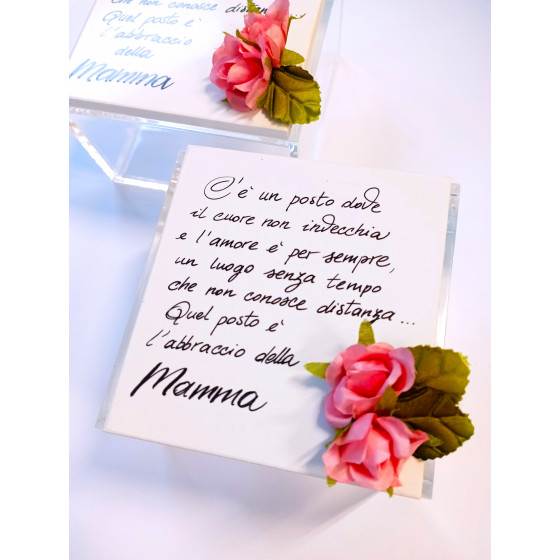 che non conosce distan
Quel posto è
l'abbraccio
della
Mamma
C'è un posto dove
il cuore non invecchia
e l'amore è per sempre,
un luogo senza tempo
che non conosce distanza...
Quel posto è
l'abbraccio della
Mamma